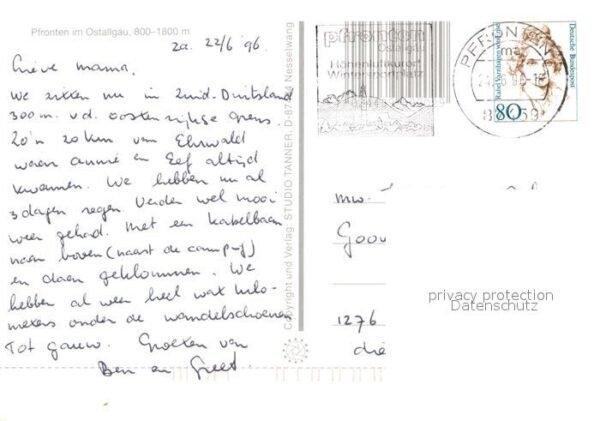 Pfronten im Ostallgäu, 800–1800 m
za. 22/6 '96.
Lieve mama.
We zitten nu in Zuid-Duitsland
300 m. v.d. oostenrijkse grens.
Zo'n 20 km van Ehrwald
waar Annie en Eef altijd
kwamen. We hebben nu al
3 dagen regen. Verder wel mooi
weer gehad. Met een kabelbaan
naar boven (naast de camping)
en daar geklommen. We
hebben al weer heel wat kilo-
meters onder de wandelschoenen
Tot gauw. Groeten van
Ben en Greet.
Copyright und Verlag: STUDIO TANNER, Nesselwang
pfronten
Ostallgäu
Höhenluftkurort
Wintersportplatz
PFRONTEN
ma
Rahel Varnhagen von Ense
Deutsche Bundespost
80
mw.
Goo
1276
die
privacy protection
Datenschutz